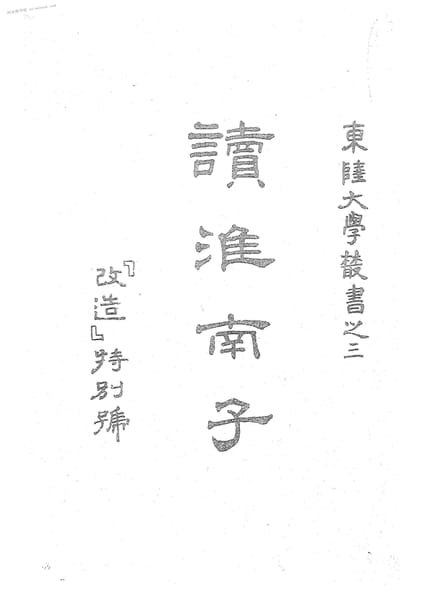 東陸大學叢書之三
讀淮南子
『改造』特別號